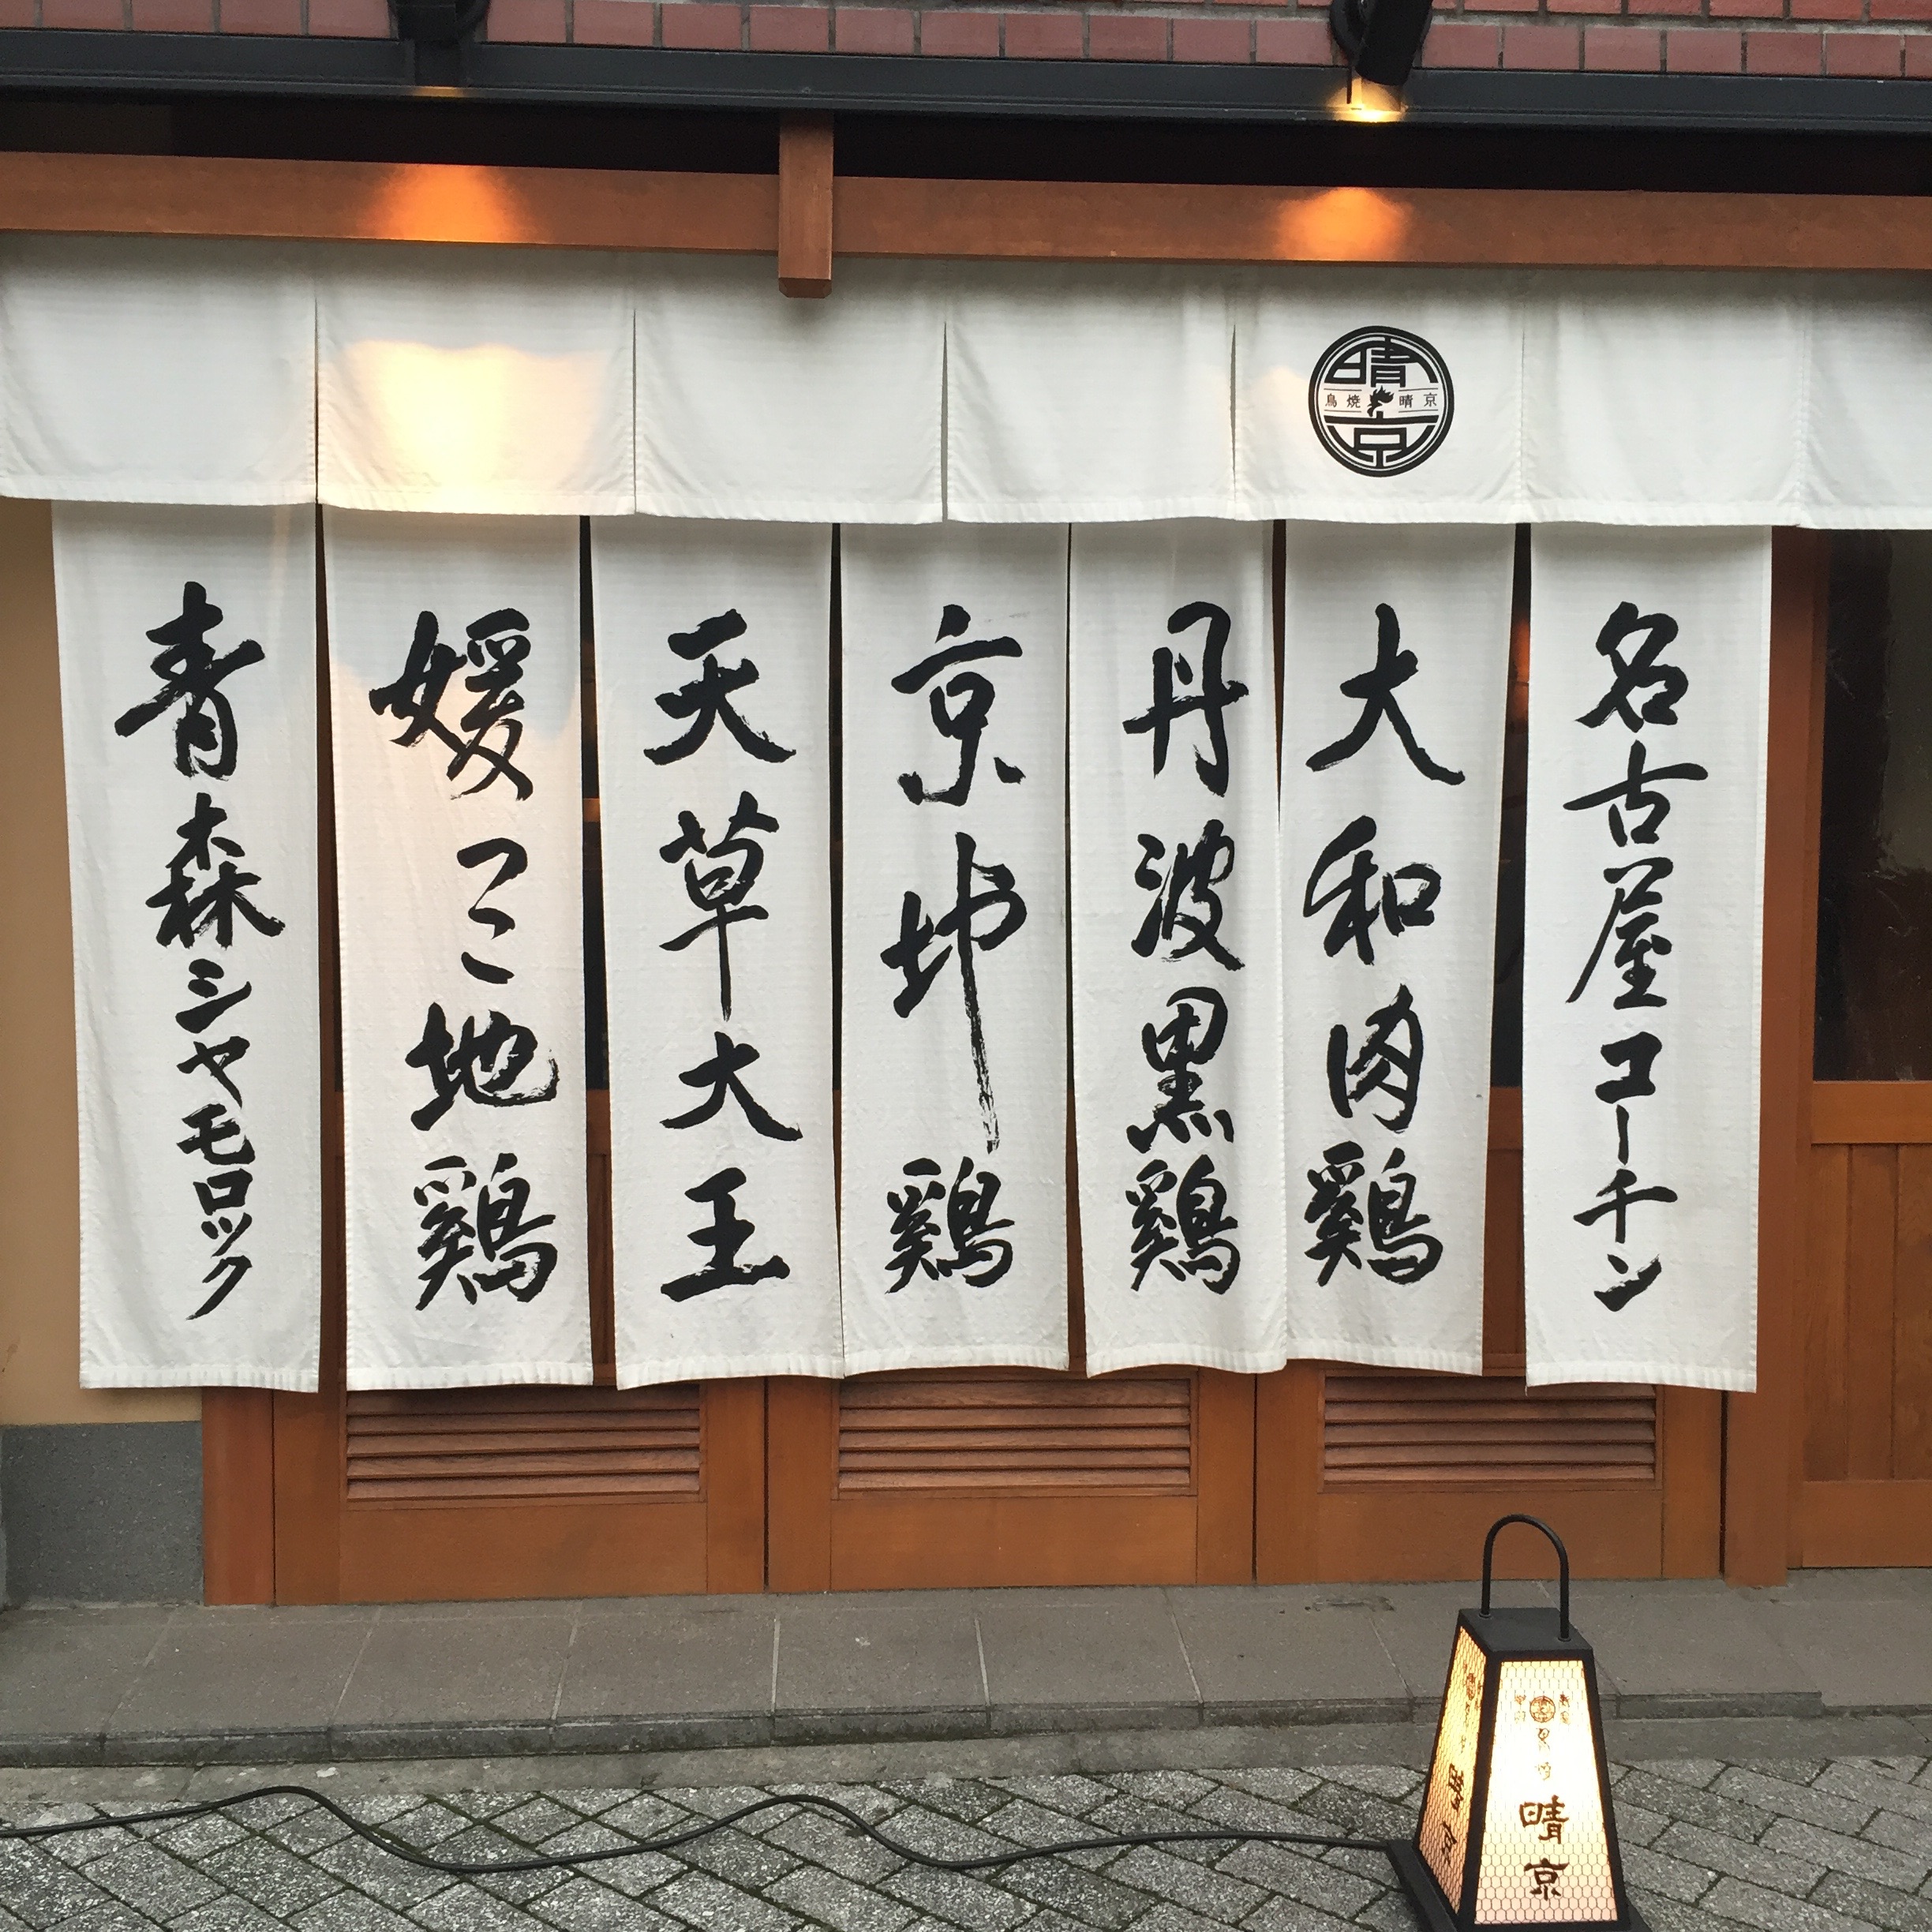 晴京
鳥焼 晴京
名古屋コーチン
大和肉鶏
丹波黒鶏
京地鶏
天草大王
媛っこ地鶏
青森シャモロック
晴京